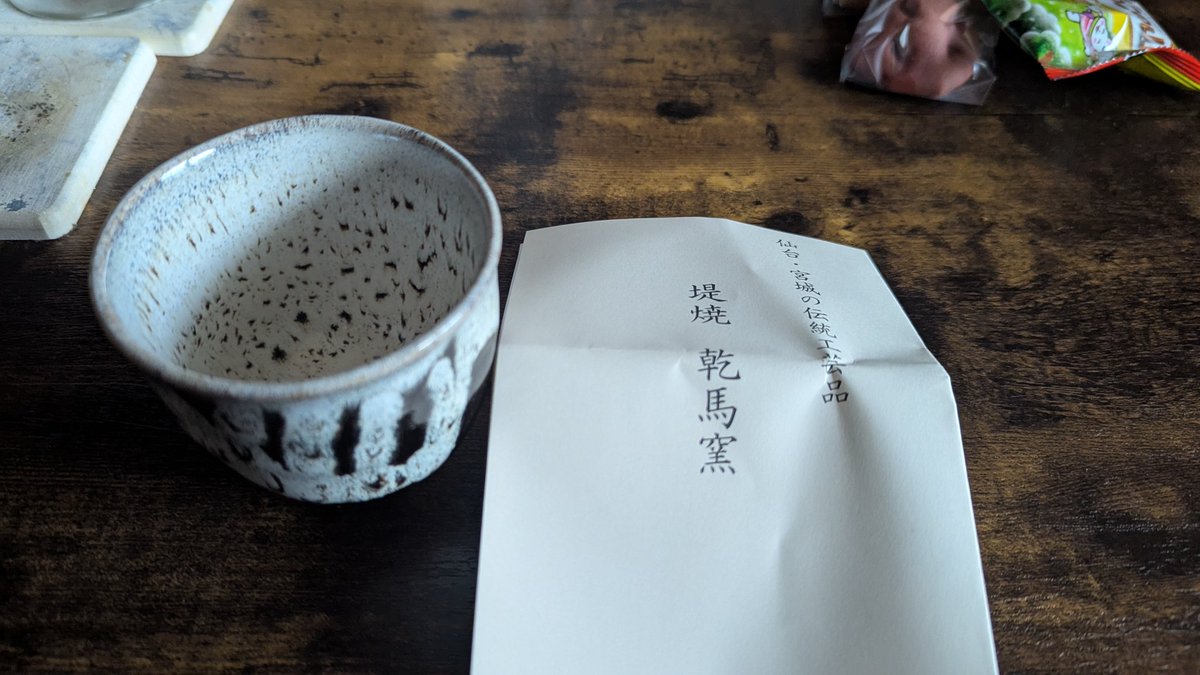 仙台・宮城の伝統工芸品
堤焼 乾馬窯